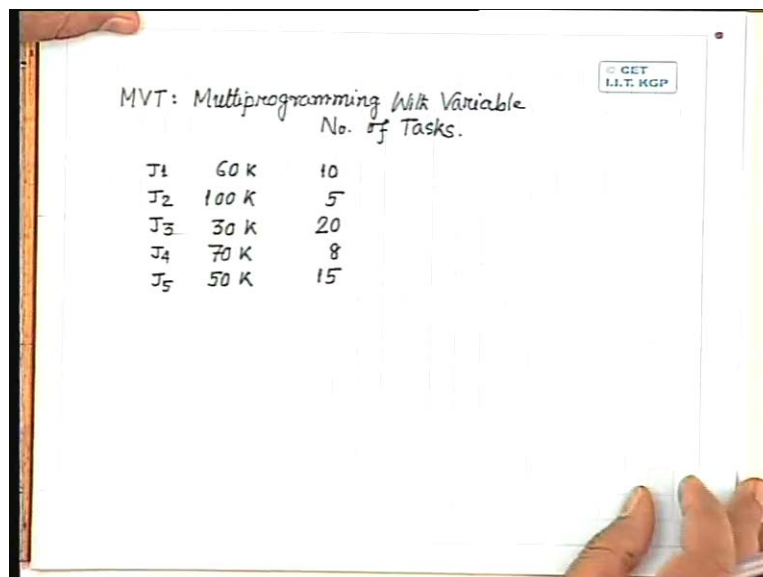 © CET
I.I.T. KGP
MVT: Multiprogramming With Variable
No. of Tasks.
J1 60 K 10
J2 100 K 5
J3 30 K 20
J4 70 K 8
J5 50 K 15